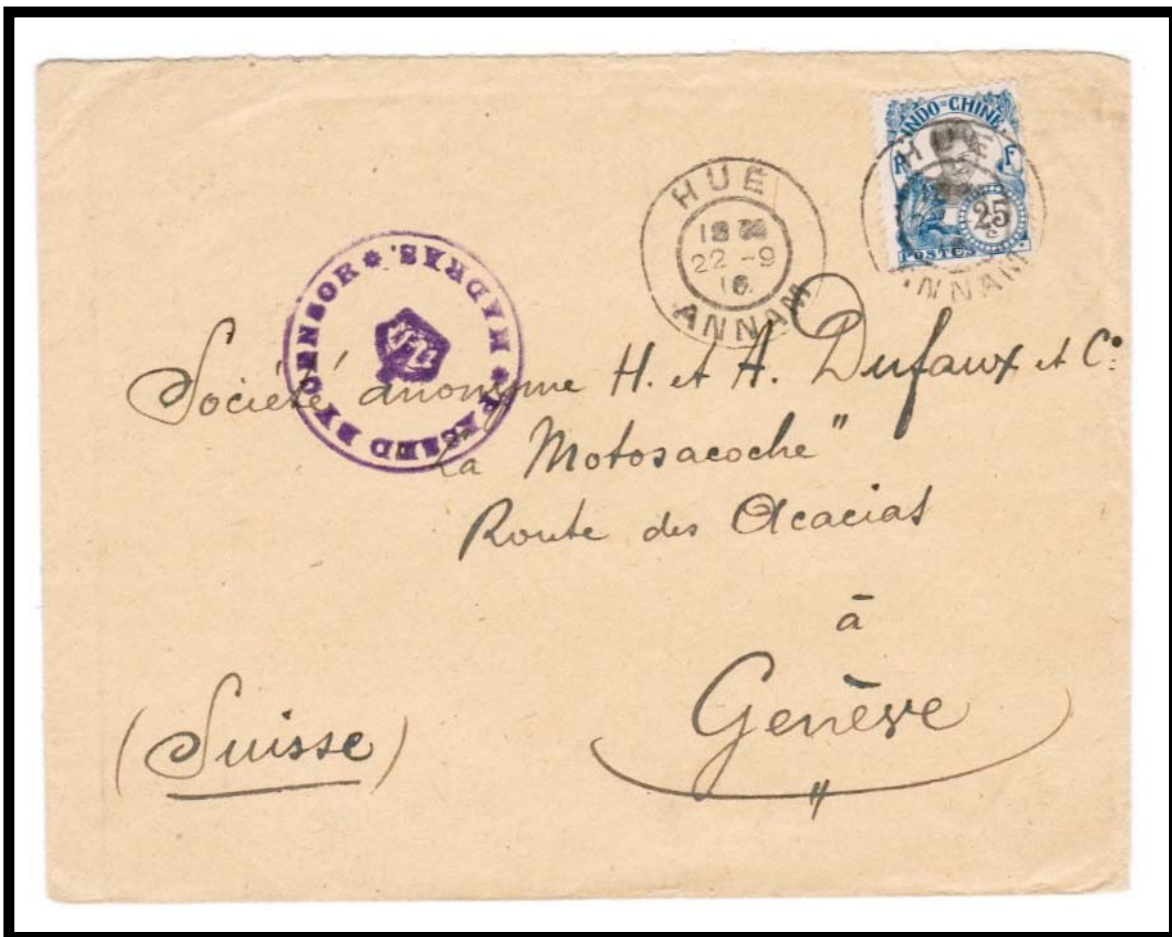 INDO-CHINE
R F
25
POSTES
HUE
ANNAM
HUE
22 -9
16
ANNAM
PASSED BY CENSOR * MADRAS. *
Société anonyme H. et A. Dufaux et Cº
"La Motosacoche"
Route des Acacias
à
Genève
(Suisse)